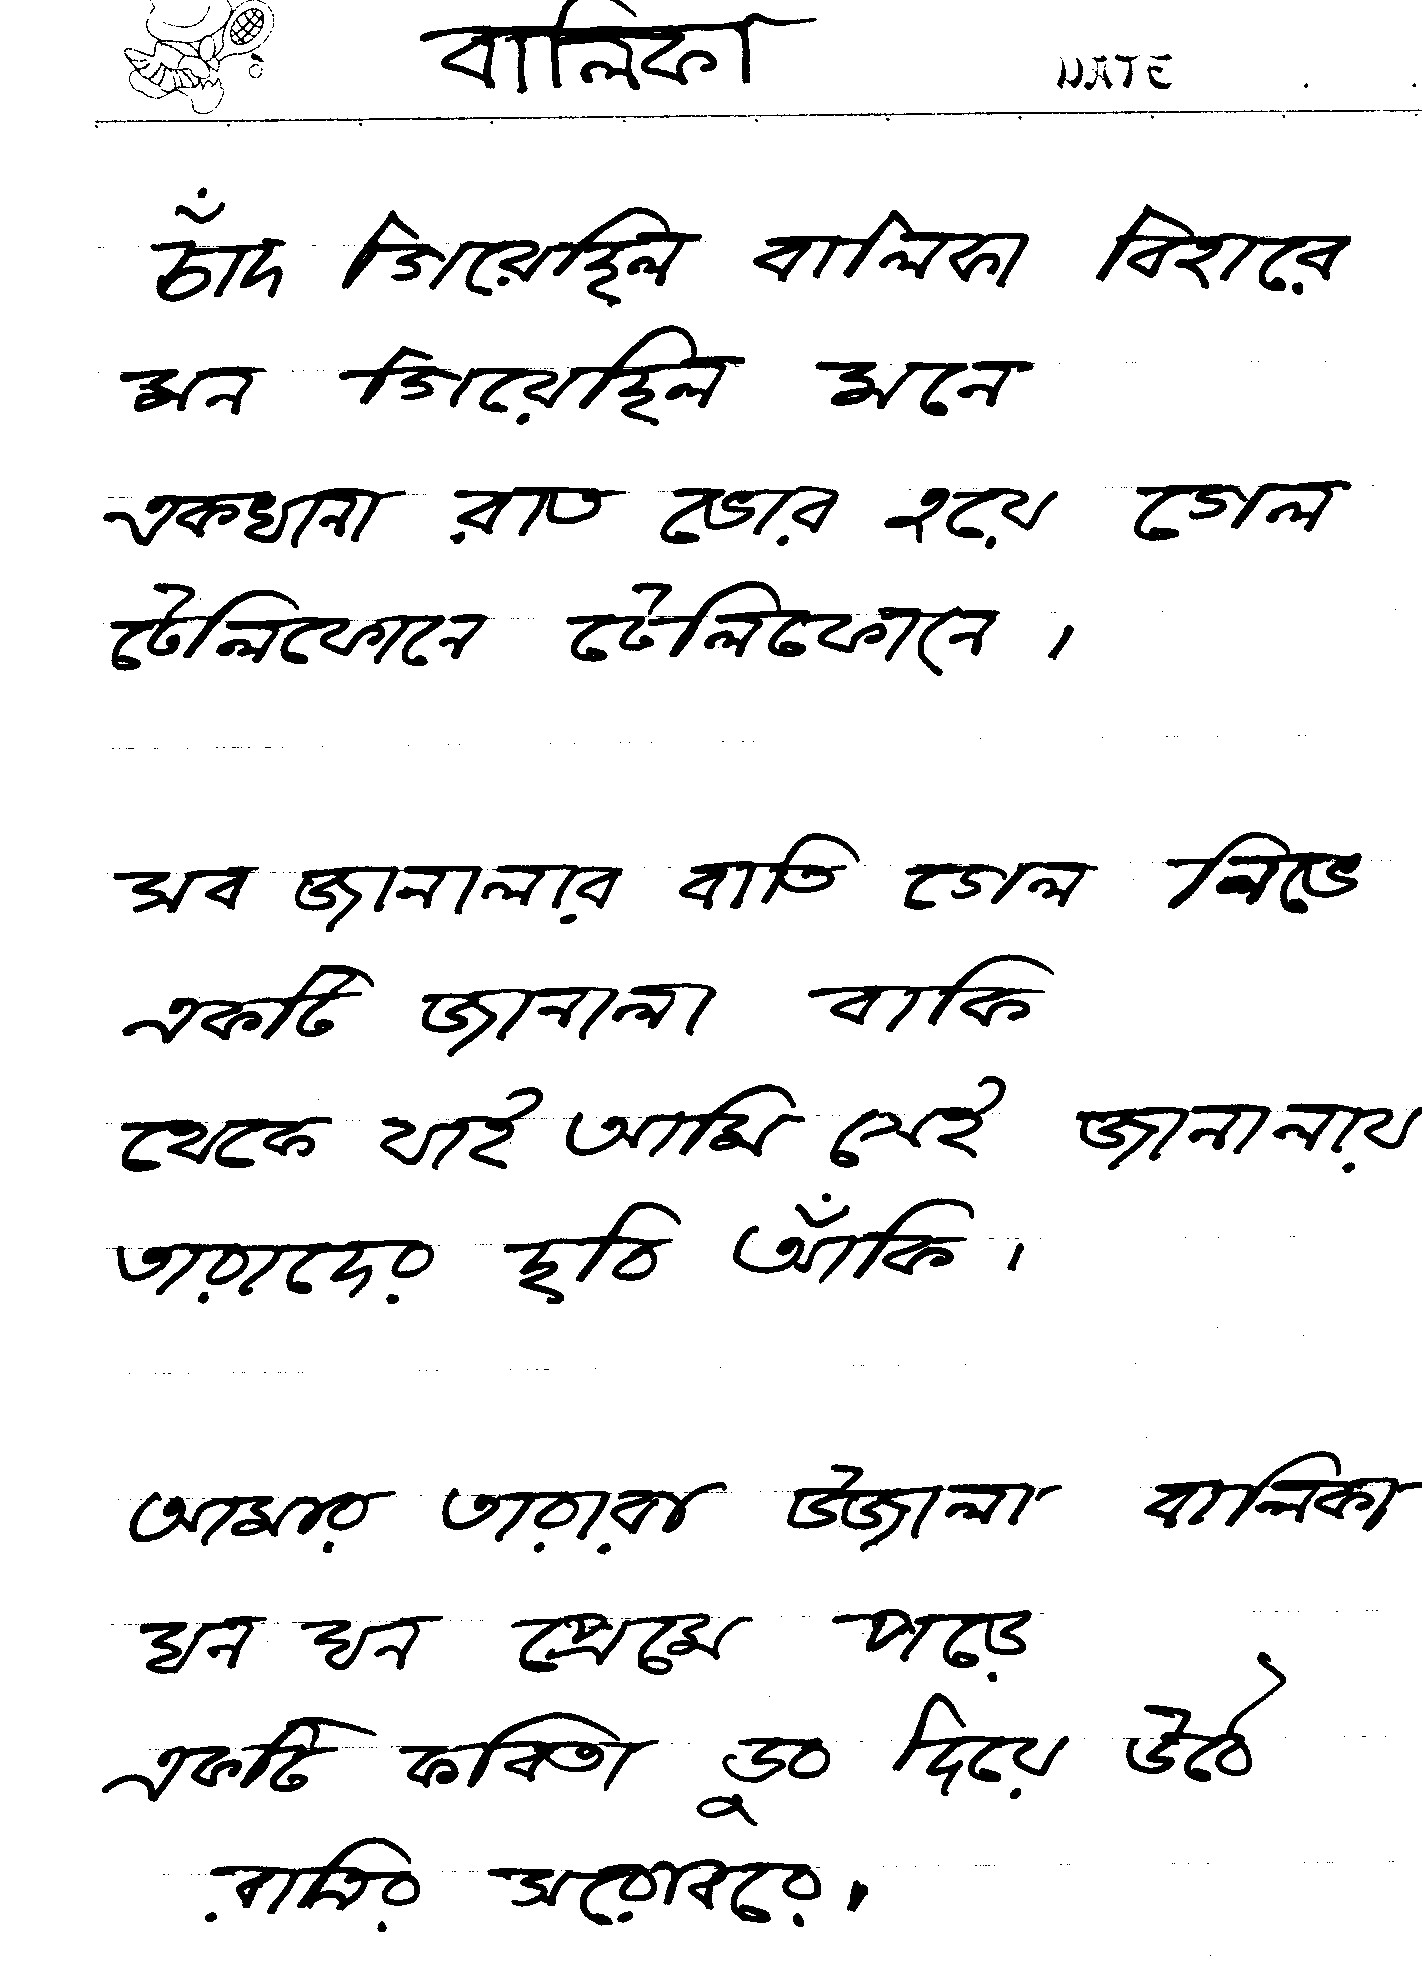 বালিকা
DATE
চাঁদ গিয়েছিল বালিকা বিহারে
মন গিয়েছিল মনে
একখানা রাত ভোর হয়ে গেল
টেলিফোনে টেলিফোনে ।
সব জানালার বাতি গেল নিভে
একটি জানালা বাকি
থেকে থাই আমি সেই জানালায়
তারাদের ছবি আঁকি ।
আমার তারারা উজালা বালিকা
ঘন ঘন প্রেমে পড়ে
একটি কবিতা ভুর দিয়ে উঠে
রাত্রির সরোবরে ।